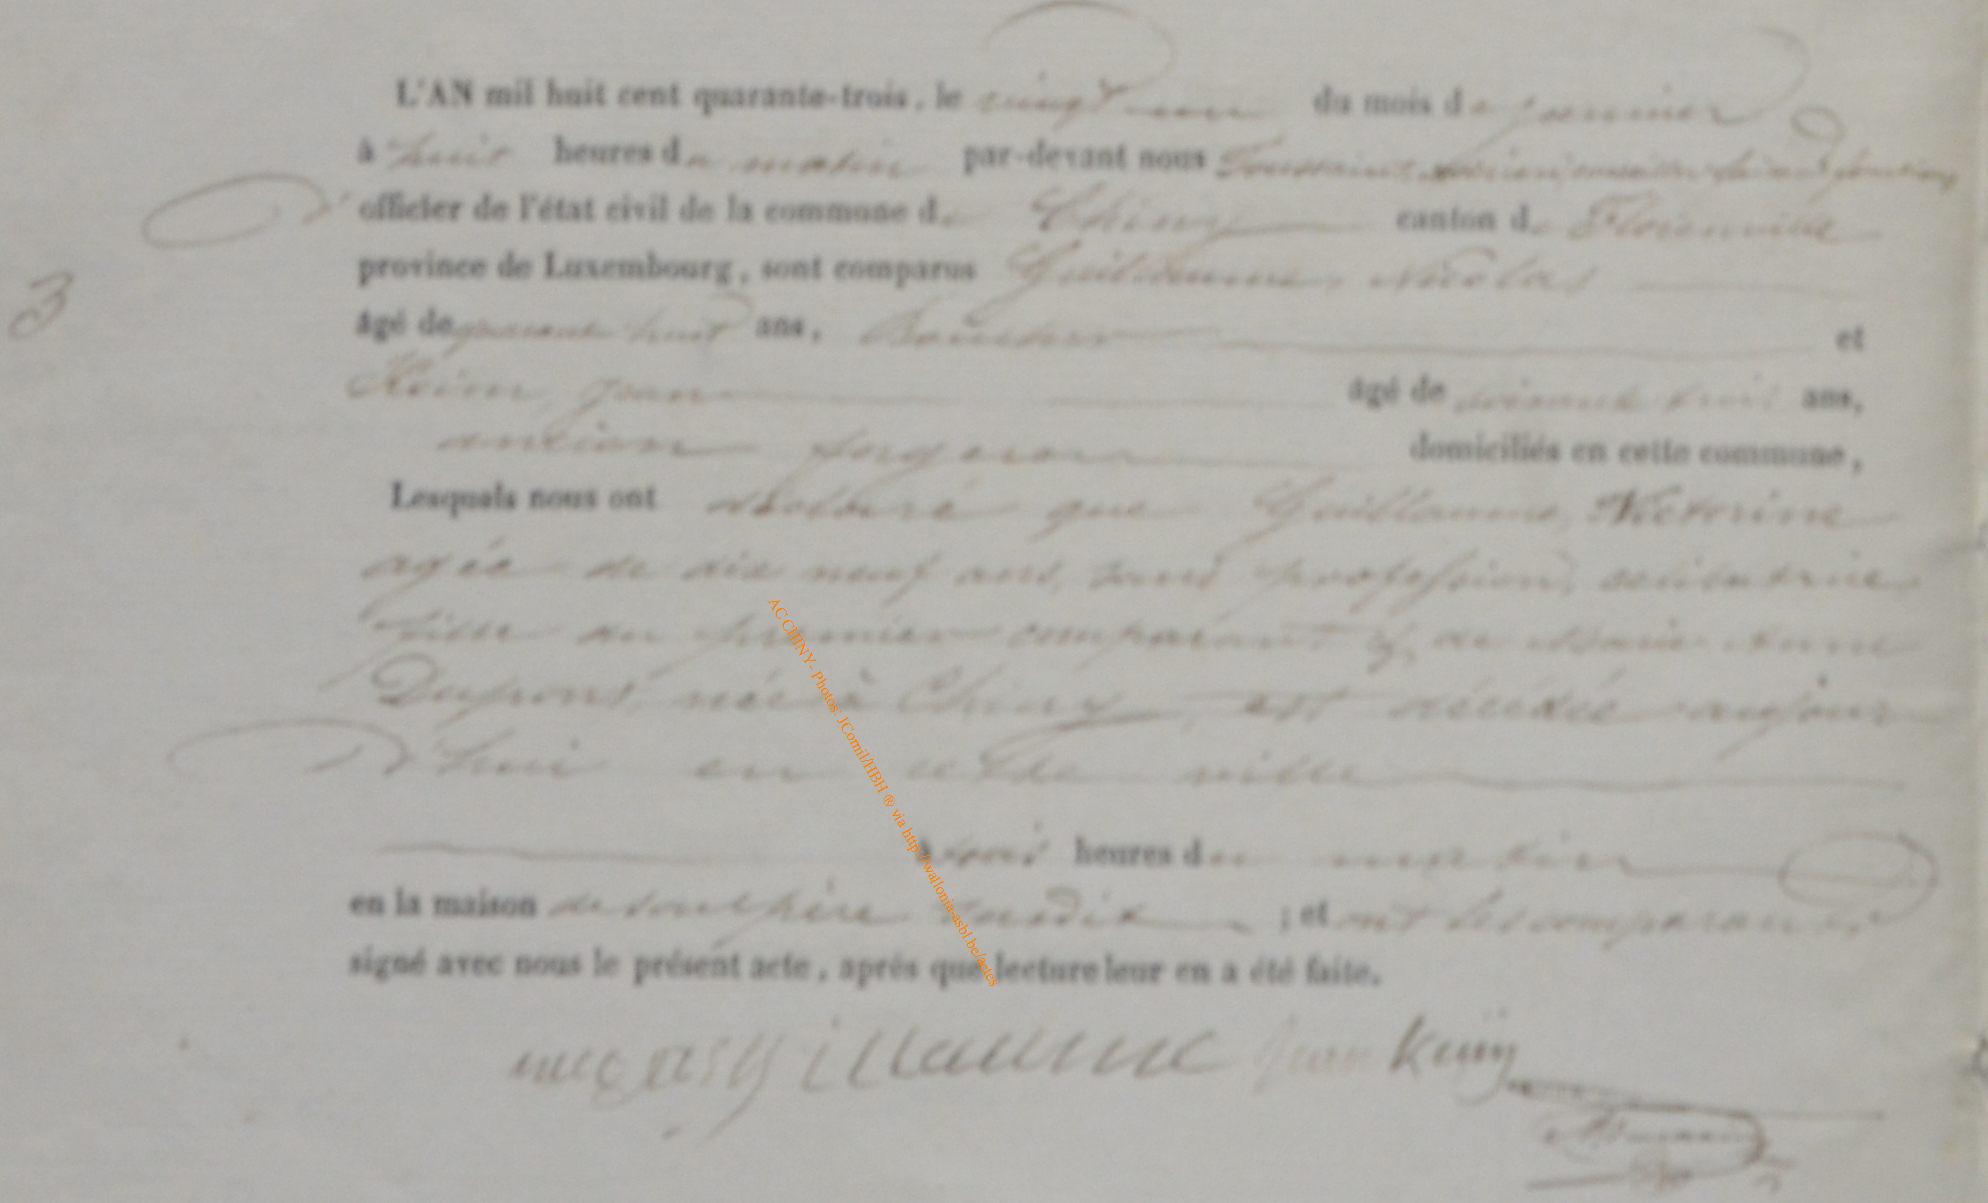 L'AN mil huit cent quarante-trois, le vingt un du mois de janvier
à huit heures du matin par-devant nous Toussaint
officier de l'état civil de la commune de Chiny canton de Florenville
3
province de Luxembourg, sont comparus Guillaume, Nicolas
âgé de quarante huit ans, et
Keim, Jean âgé de ans,
ancien forgeron domiciliés en cette commune,
Lesquels nous ont déclaré que Guillaume, Victorine
agée de dix neuf ans, sans profession, célibataire,
fille du premier comparant & de Marie Anne
Dupont, née à Chiny, est décédée aujour
d'hui en cette ville
à trois heures du matin
en la maison de son père susdit ; et ont les comparants
signé avec nous le présent acte, après que lecture leur en a été faite.
Guillaume Jean
ACCHINY- Photos' JComil/HBH ® via http://wallonia-asbl.be/actes